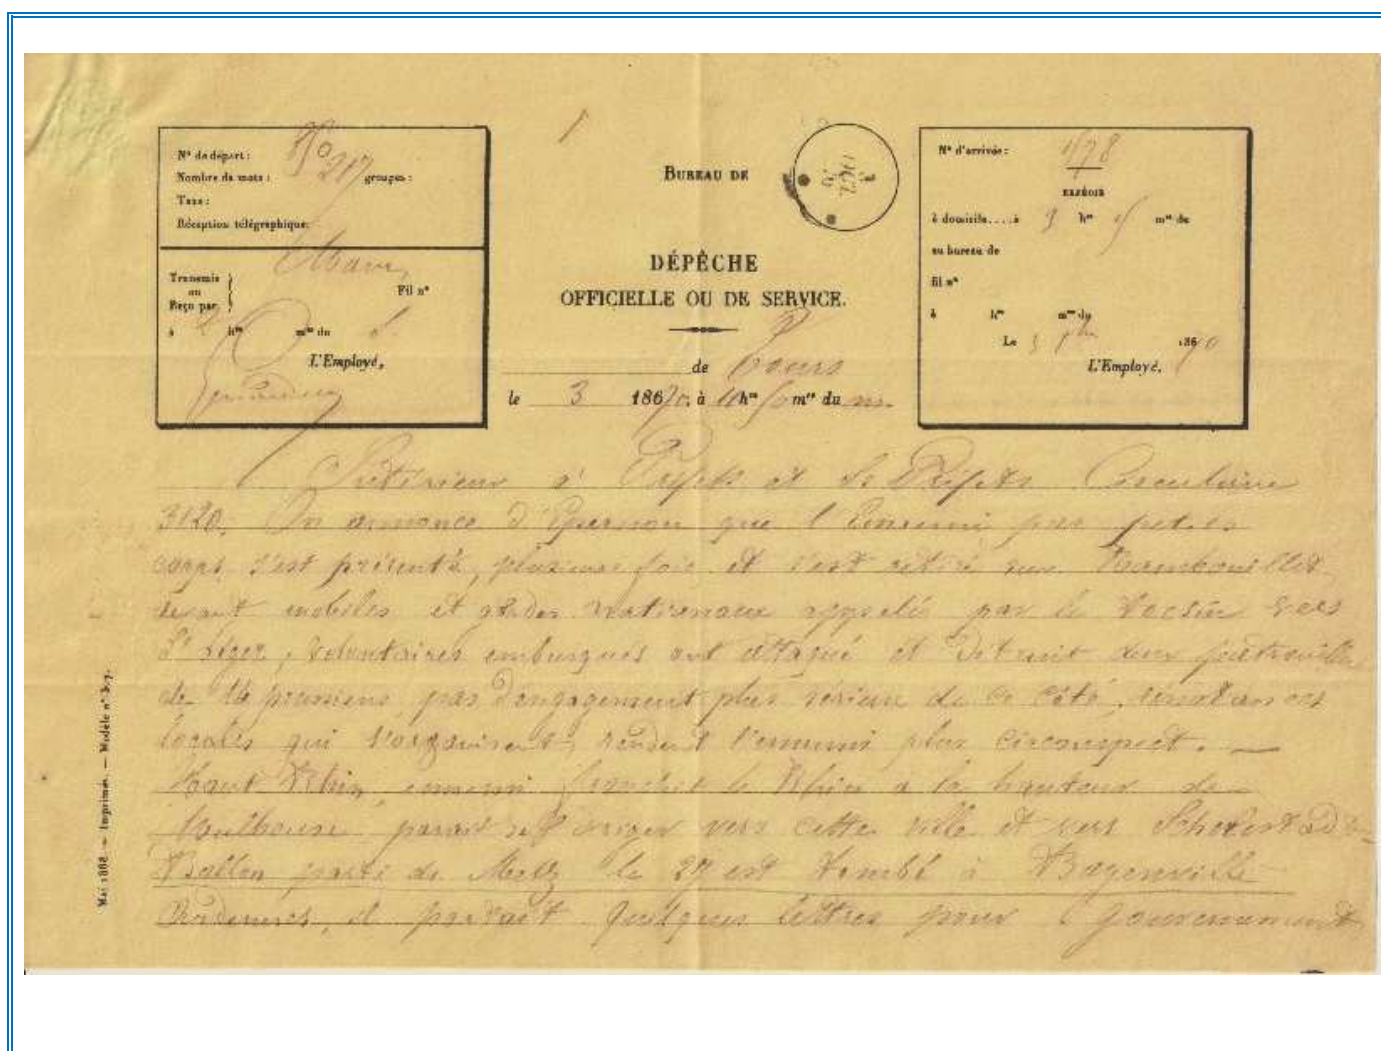 N° de départ :
Nombre de mots : 217 groupes :
Taxe :
Réception télégraphique:
Transmis
ou
Reçu par
Fil n°
à hres mes du
L'Employé,
BUREAU DE
DÉPÊCHE
OFFICIELLE OU DE SERVICE.
de Tours
le 3 1870, à hres mes du m.
N° d'arrivée : 
EXPÉDIÉE
à domicile.... à 3 hres mes du
au bureau de
fil n°
à hres mes du
Le 3 1870
L'Employé,
Intérieur à Préfets et Ss Préfets Circulaire
3120. On annonce d'Epernon que l'Ennemi par petits
corps s'est présenté, plusieurs fois et s'est retiré sur Rambouillet
devant mobiles et gardes nationaux appelés par le tocsin vers
St Léger, volontaires embusqués ont attaqué et détruit deux patrouilles
de 14 prussiens pas d'engagement plus sérieux de ce côté, résistances
locales qui s'organisent, rendent l'ennemi plus circonspect. —
Haut Rhin, ennemi franchit le Rhin à la hauteur de
Mulhouse parait se diriger vers cette ville et vers Schelestadt
Ballon parti de Metz le 27 est tombé à
Ardennes, il portait quelques lettres pour gouvernement
Mai 1868. — Imprimés. — Modèle n°